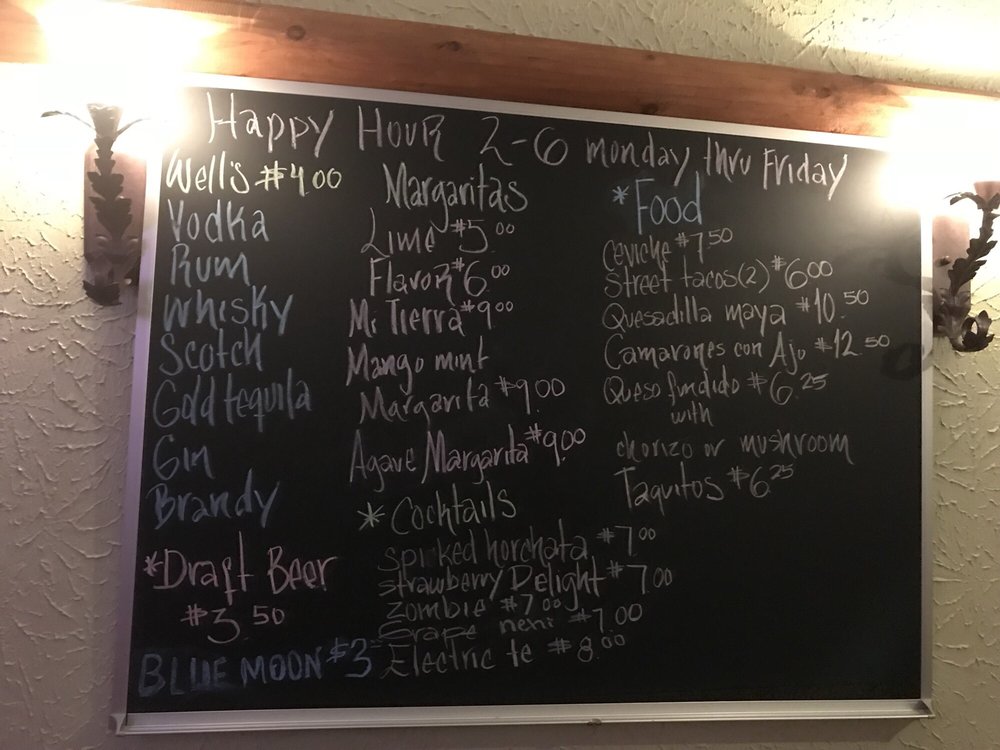 Happy Hour 2-6 monday thru Friday
Well's $4.00
Vodka
Rum
Whisky
Scotch
Gold tequila
Gin
Brandy
*Draft Beer
$3.50
BLUE MOON $3
Margaritas
Lime $5.00
Flavor $6.00
Mi Tierra $9.00
Mango mint
Margarita $9.00
Agave Margarita $9.00
*Cocktails
Spicked horchata $7.00
Strawberry Delight $7.00
Zombie $7.00
Grape nehi $7.00
Electric te $8.00
*Food
Ceviche $7.50
Street tacos(2) $6.00
Quesadilla maya $10.50
Camarones con Ajo $12.50
Queso fundido $6.25
with
chorizo or mushroom
Taquitos $6.25